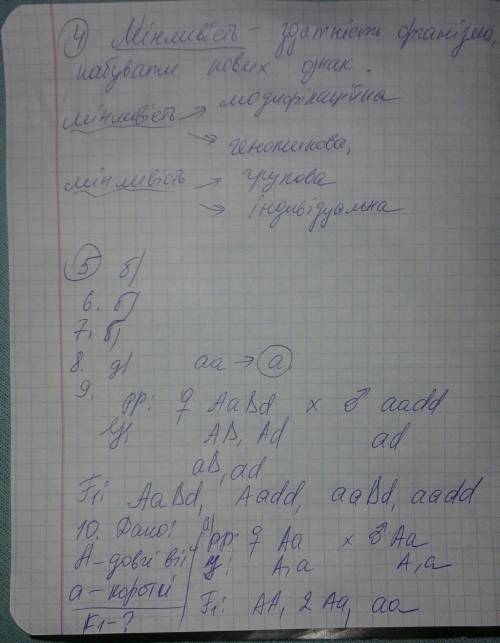 4 Мінливість – здатність організму,
набувати нових ознак.
мінливість → модифікаційна
→ генотипова,
мінливість → групова
→ індивідуальна
5 б)
6. б)
7. б)
8. д) aa → a
9.
PP: ♀ AaBd x ♂ aadd
G: AB, Ad ad
aB, ad
F1: AaBd, Aadd, aaBd, aadd
10. Дано: а) PP: ♀ Aa x ♂ Aa
A - довгі вії G: A, a A, a
a - короткі F1: AA, 2 Aa, aa
F1 - ?